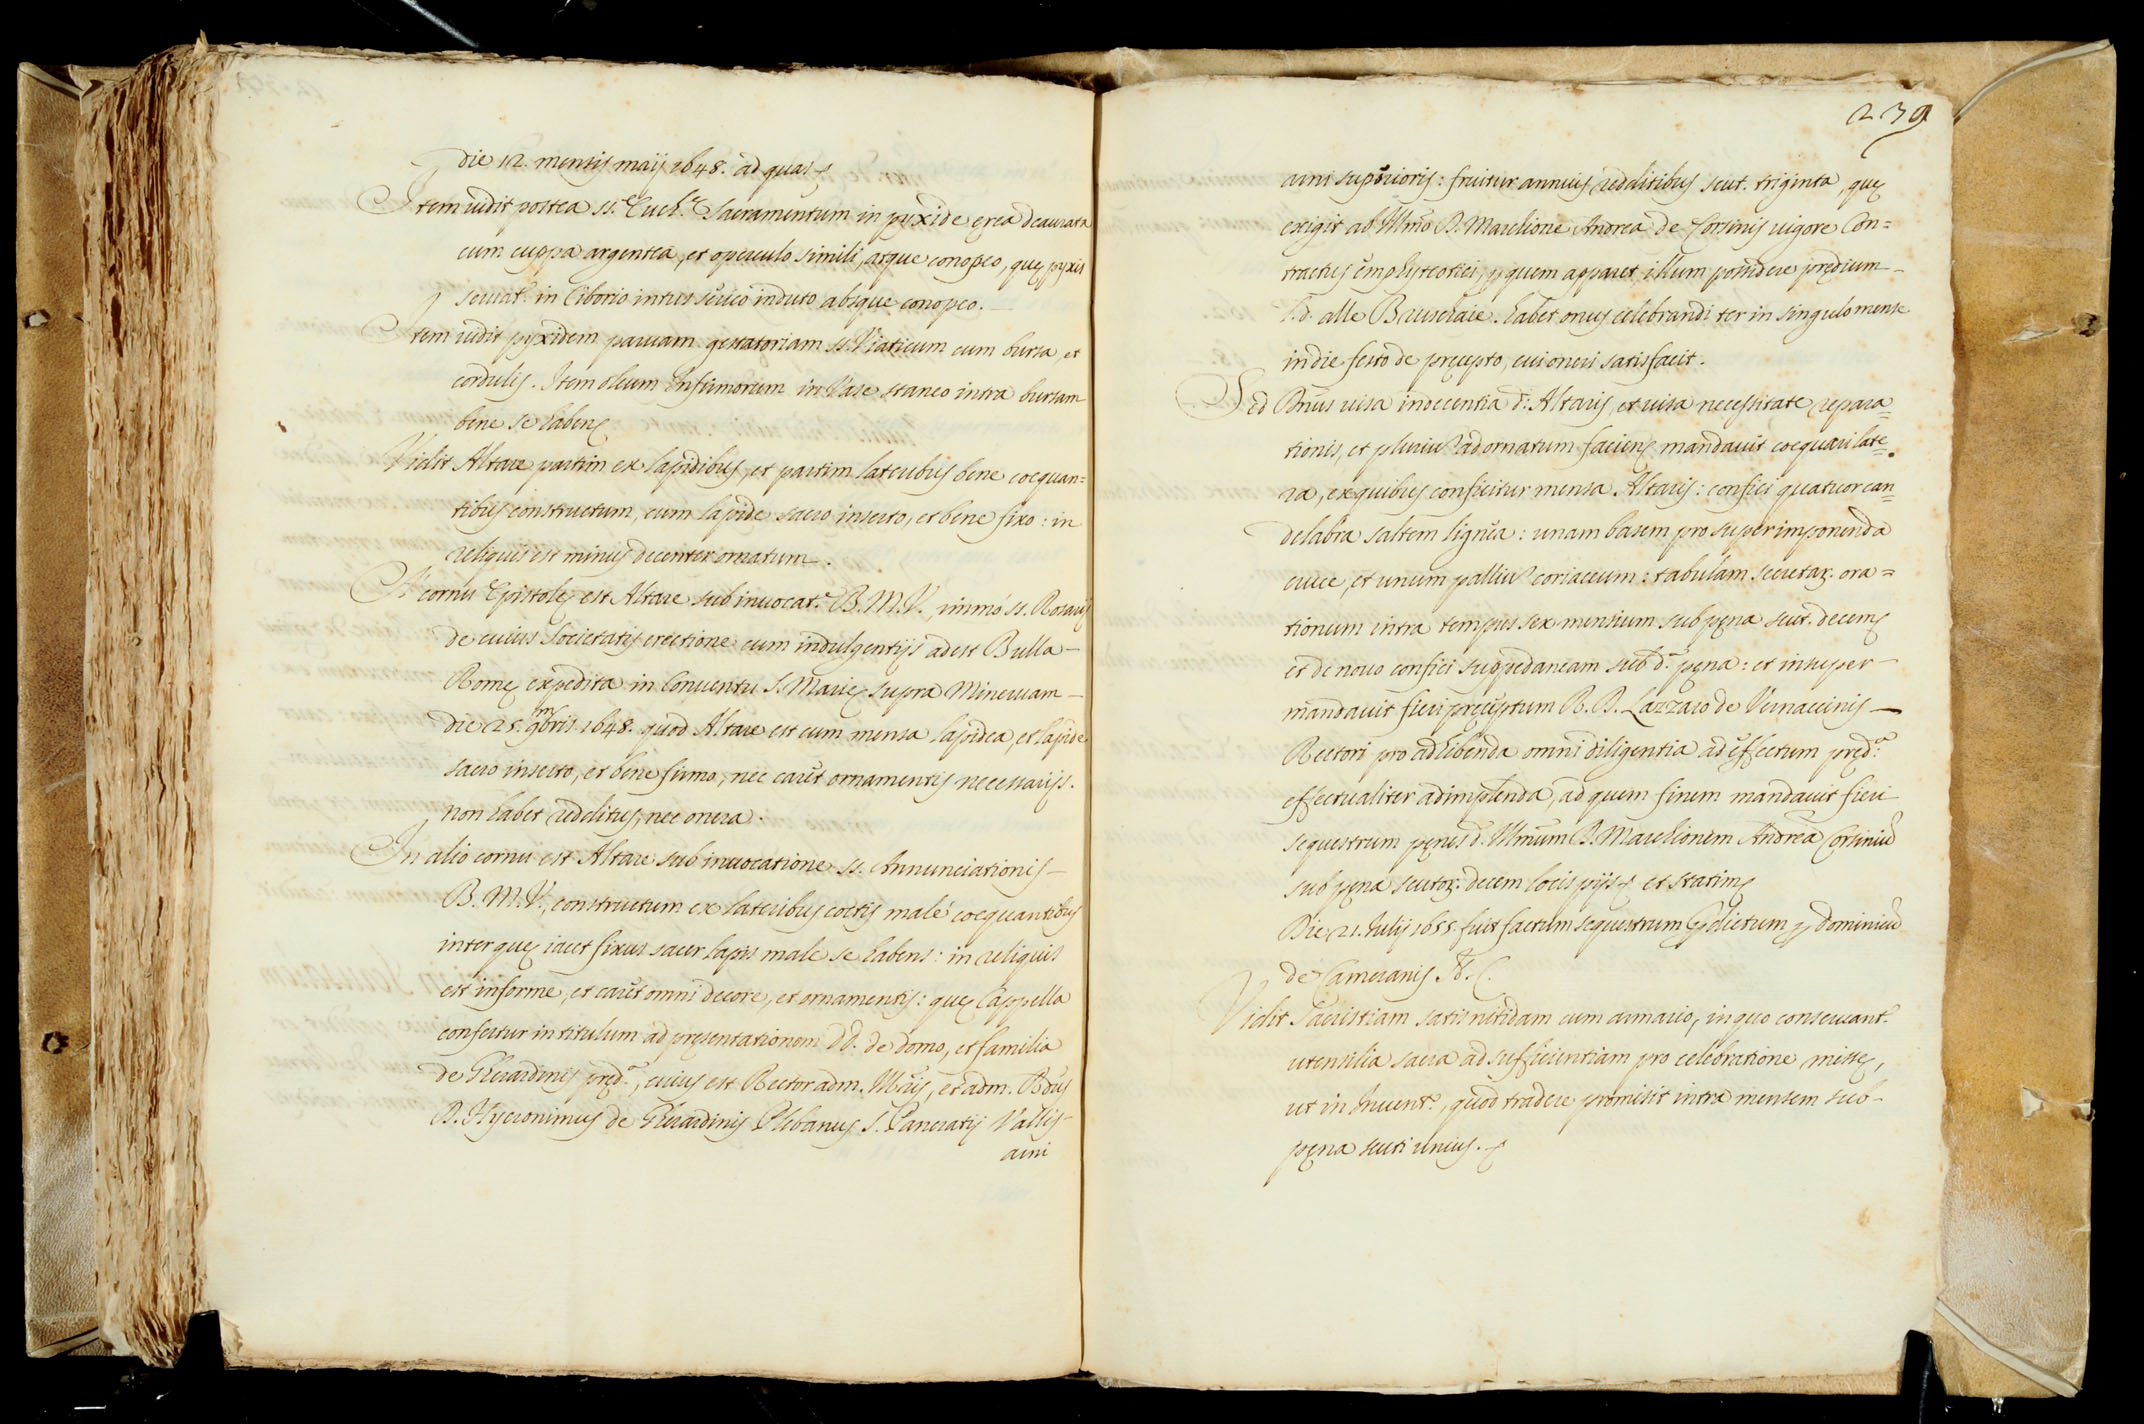 die 12. mensis maij 1648. ad quas &
Item vidit postea ss.ᵉ Euch.ᵉ Sacramentum in pyxide ęrea deaurata
cum cuppa argentea, et operculo simili, atque conopeo, quę pyxis
servat.ʳ in Ciborio intus serico induto absque conopeo. —
Item vidit pyxidem parvam gestatoriam ss. Viaticum cum bursa, et
cordulis. Item oleum Infirmorum in Vase staneo intra bursam
bene se habenȩ
Vidit Altare partim ex lapidibus, et partim lateribus bene coequan=
tibus constructum, cum lapide sacro inserto, et bene fixo: in
reliquis est minus decenter ornatum.
A cornu Epistolę est Altare sub invocat.ᵉ B. M. V., immò ss. Rosarij
de cuius Societatis erectione cum indulgentijs adest Bulla —
Romę expedita in Conventu S. Marię supra Minervam —
die 25. 9bris 1648. quod Altare est cum mensa lapidea, et lapide
sacro inserto, et bene firmo, nec caret ornamentis necessarijs.
non habet redditus, nec onera.
In alio cornu est Altare sub invocatione ss. Annunciationis —
B. M. V., constructum ex lateribus coctis malè coequantibus
inter quę iacet fixus sacer lapis male se habens: in reliquis
est informe, et caret omni decore, et ornamentis: quę Cappella
confertur in titulum ad pręsentationem DD. de domo, et familia
de Gherardinis pręd.ᵃ, cuius est Rector adm. Mcus, et adm. Rdus
D. Hyeronimus de Gherardinis Plebanus S. Pancratij Vallis-
arni
239
arni superioris: fruitur annuis redditibus scut. triginta, quę
exigit ab Illmo D. Marchione Andrea de Corsinis vigore Con=
tractus emphyteotici, p quem apparet illum possidere prędium —
l.d. alle Brusciaie. habet onus celebrandi ter in singulo mense
in die festo de pręcepto, cui oneri satisfacit.
Sed Dnus visa indecentia d.ⁱ Altaris, et visa necessitate repara=
tionis, et plurium ad ornatum facienȩ mandavit coequari late=
ra, ex quibus conficitur mensa Altaris: confici quatuor can=
delabra saltem lignea: unam basem pro superimponenda
cruce, et unum palliũ coriaceum: tabulam secretaȝ. ora=
tionum intra tempus sex mensium sub pęna scut. decemȩ
et de novo confici suppedaneam sub d.ᵃ pęna: et insuper —
mandavit fieri pręceptum R. D. Lazzaro de Vernaccinis —
Rectori pro adhibenda omni diligentia ad effectum pręd.ᵃ
effectualiter adimplenda, ad quem finem mandavit fieri
sequestrum penes d. Illmum D. Marchionem Andrea Corsiniũ
sub pęna scutoȝ. decem locis pijs & et statimȩ
Die 21. Iulij 1655. fuit factum sequestrum pdictum p dominiũ
de Cameranis N. C.
Vidit Sacristiam satis nitidam cum armario, in quo conservant.ʳ
utensilia sacra ad sufficientiam pro celebratione missę,
ut in Invent.ᵒ, quod tradere promisit intra mensem sub —
pęna scuti unius. &